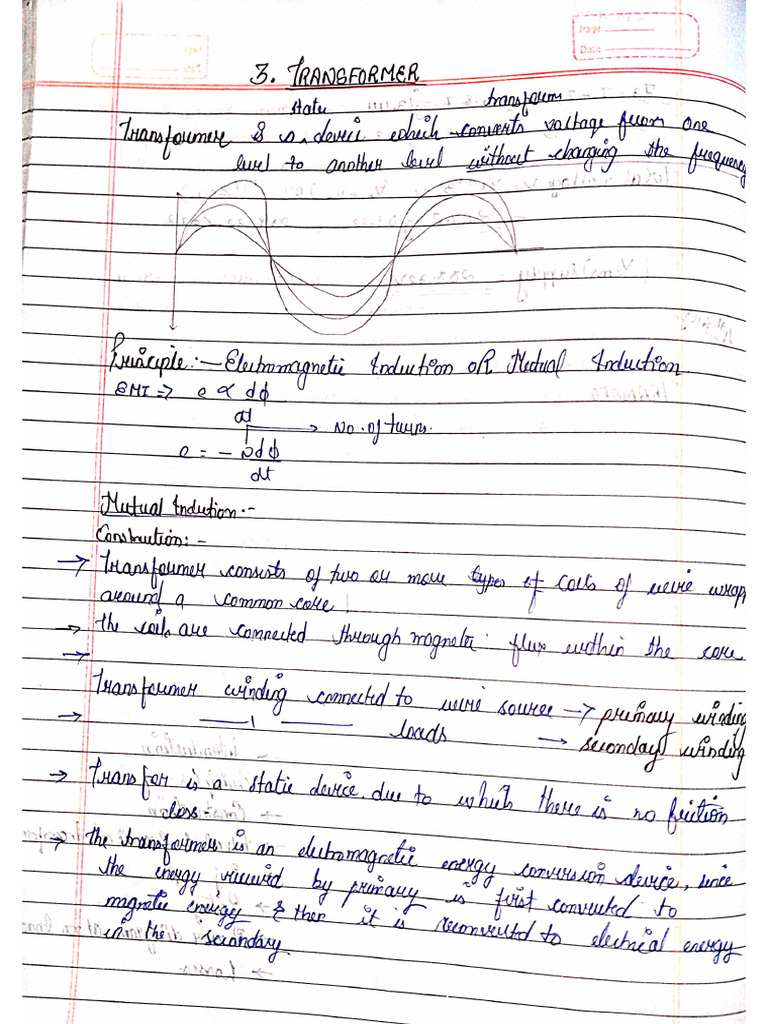 Page
Date
3. TRANSFORMER
static transforms
Transformer is a device which converts voltage from one
level to another level without changing the frequency
Principle:- Electromagnetic Induction OR Mutual Induction
EMI => e ∝ dϕ
dt
→ No. of turns.
e = - Ndϕ
dt
Mutual Indution:-
Constrution:-
→ Transformer consists of two or more types of coils of wire wrapp
around a common core!
→ the coils are connected through magnetic flux within the core
→
Transformer winding connected to wire source → primary winding
→ —— 1 —— loads → seconday winding
→ Transfor is a static device due to which there is no friction
loss
→ the transformer is an elutromagnetic energy conversion device, since
the energy received by primary is first converted to
magnetic energy & then it is reconverted to electrical energy
in the secondary